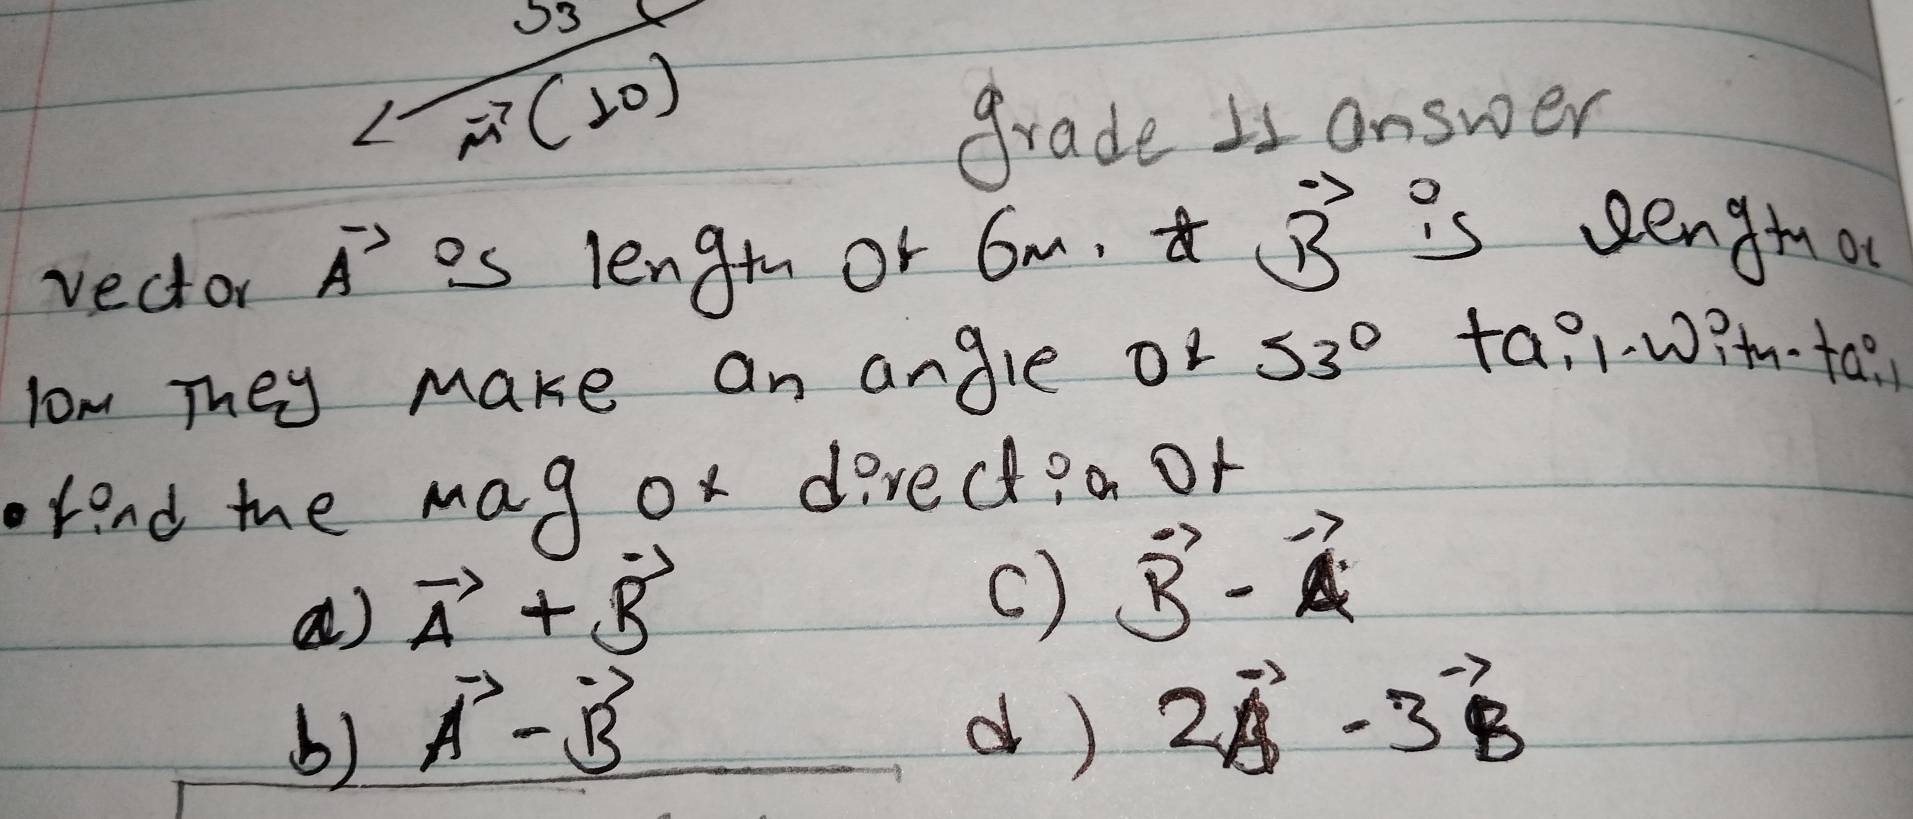 53
M⃗ (10)
grade 11 answer
vector A⃗ is length of 6m. & B⃗ is length of
10m They make an angle of 53° tail-with-tail
• find the mag of direction of
a) A⃗ + B⃗ c) B⃗ - A⃗
b) A⃗ - B⃗ d) 2A⃗ - 3B⃗